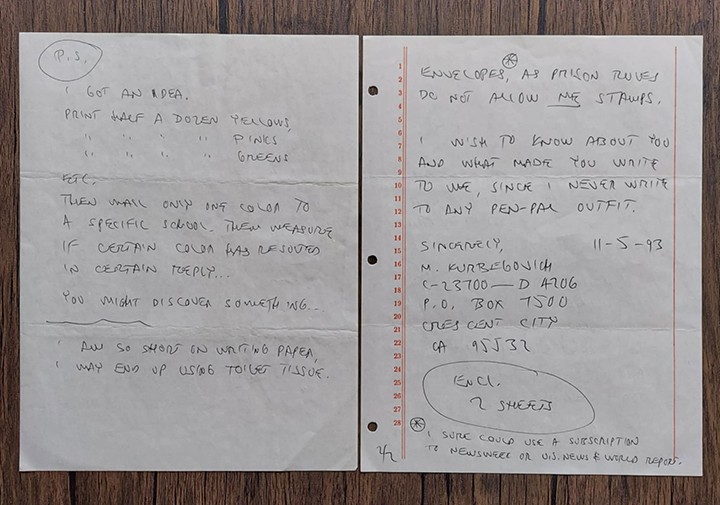 P.S.
I GOT AN IDEA.
PRINT HALF A DOZEN YELLOWS,
" " " " PINKS
" " " " GREENS
ETC.
THEN MAIL ONLY ONE COLOR TO
A SPECIFIC SCHOOL. THEN MEASURE
IF CERTAIN COLOR HAS RESULTED
IN CERTAIN REPLY...
YOU MIGHT DISCOVER SOMETHING...
I AM SO SHORT ON WRITING PAPER,
I MAY END UP USING TOILET TISSUE.
1
2
3
4
5
6
7
8
9
10
11
12
13
14
15
16
17
18
19
20
21
22
23
24
25
26
27
28
*
ENVELOPES, AS PRISON RULES
DO NOT ALLOW ME STAMPS.
I WISH TO KNOW ABOUT YOU
AND WHAT MADE YOU WRITE
TO ME, SINCE I NEVER WRITE
TO ANY PEN-PAL OUTFIT.
SINCERELY, 11-5-93
M. KURBEGOVICH
C-23700—D A206
P.O. BOX 7500
CRESCENT CITY
CA 95532
ENCL.
2 SHEETS
* I SURE COULD USE A SUBSCRIPTION
TO NEWSWEEK OR U.S. NEWS & WORLD REPORT.
2/2